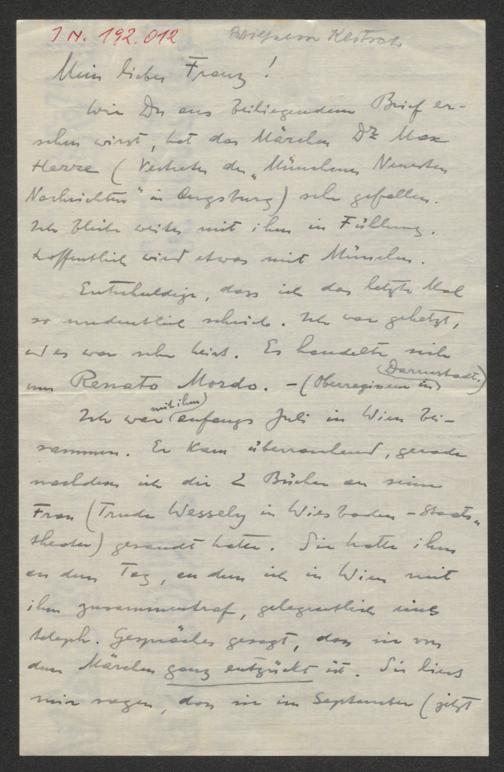 I. N. 192.012
Mein lieber Franz!
Wie Du aus beiliegendem Brief er-
sehen wirst, hat das Märchen Dr. Max
Herre (Vertreter der „Münchener Neuesten
Nachrichten" in Augsburg) sehr gefallen.
Ich bleibe weiter mit ihm in Fühlung.
Hoffentlich wird etwas mit München.
Entschuldige, dass ich das letzte Mal
so undeutlich schrieb. Ich war gehetzt,
und es war sehr heiss. Es handelte sich
um Renato Mordo. – (Oberregisseur in Darmstadt.)
Ich war (mit ihm) anfangs Juli in Wien bei-
sammen. Er kam überraschend, gerade
nachdem ich die 2 Bücher an seine
Frau (Trude Wessely in Wiesbaden – Staats-
theater) gesandt hatte. Sie hatte ihm
an dem Tag, an dem ich in Wien mit
ihm zusammentraf, gelegentlich eines
teleph. Gespräches gesagt, dass sie von
dem Märchen ganz entzückt ist. Sie liess
mir sagen, dass sie im September (jetzt